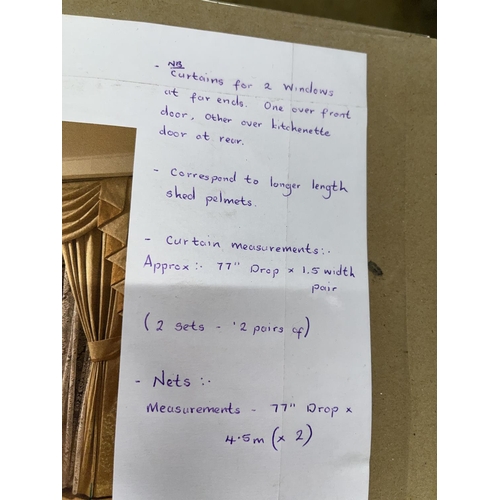 NB
- Curtains for 2 Windows
at far ends. One over front
door, other over kitchenette
door at rear.
- Correspond to longer length
shed pelmets.
- Curtain measurements:-
Approx :- 77" Drop x 1.5 width
pair
(2 sets - 2 pairs of)
- Nets :-
Measurements - 77" Drop x
4.5m (x 2)